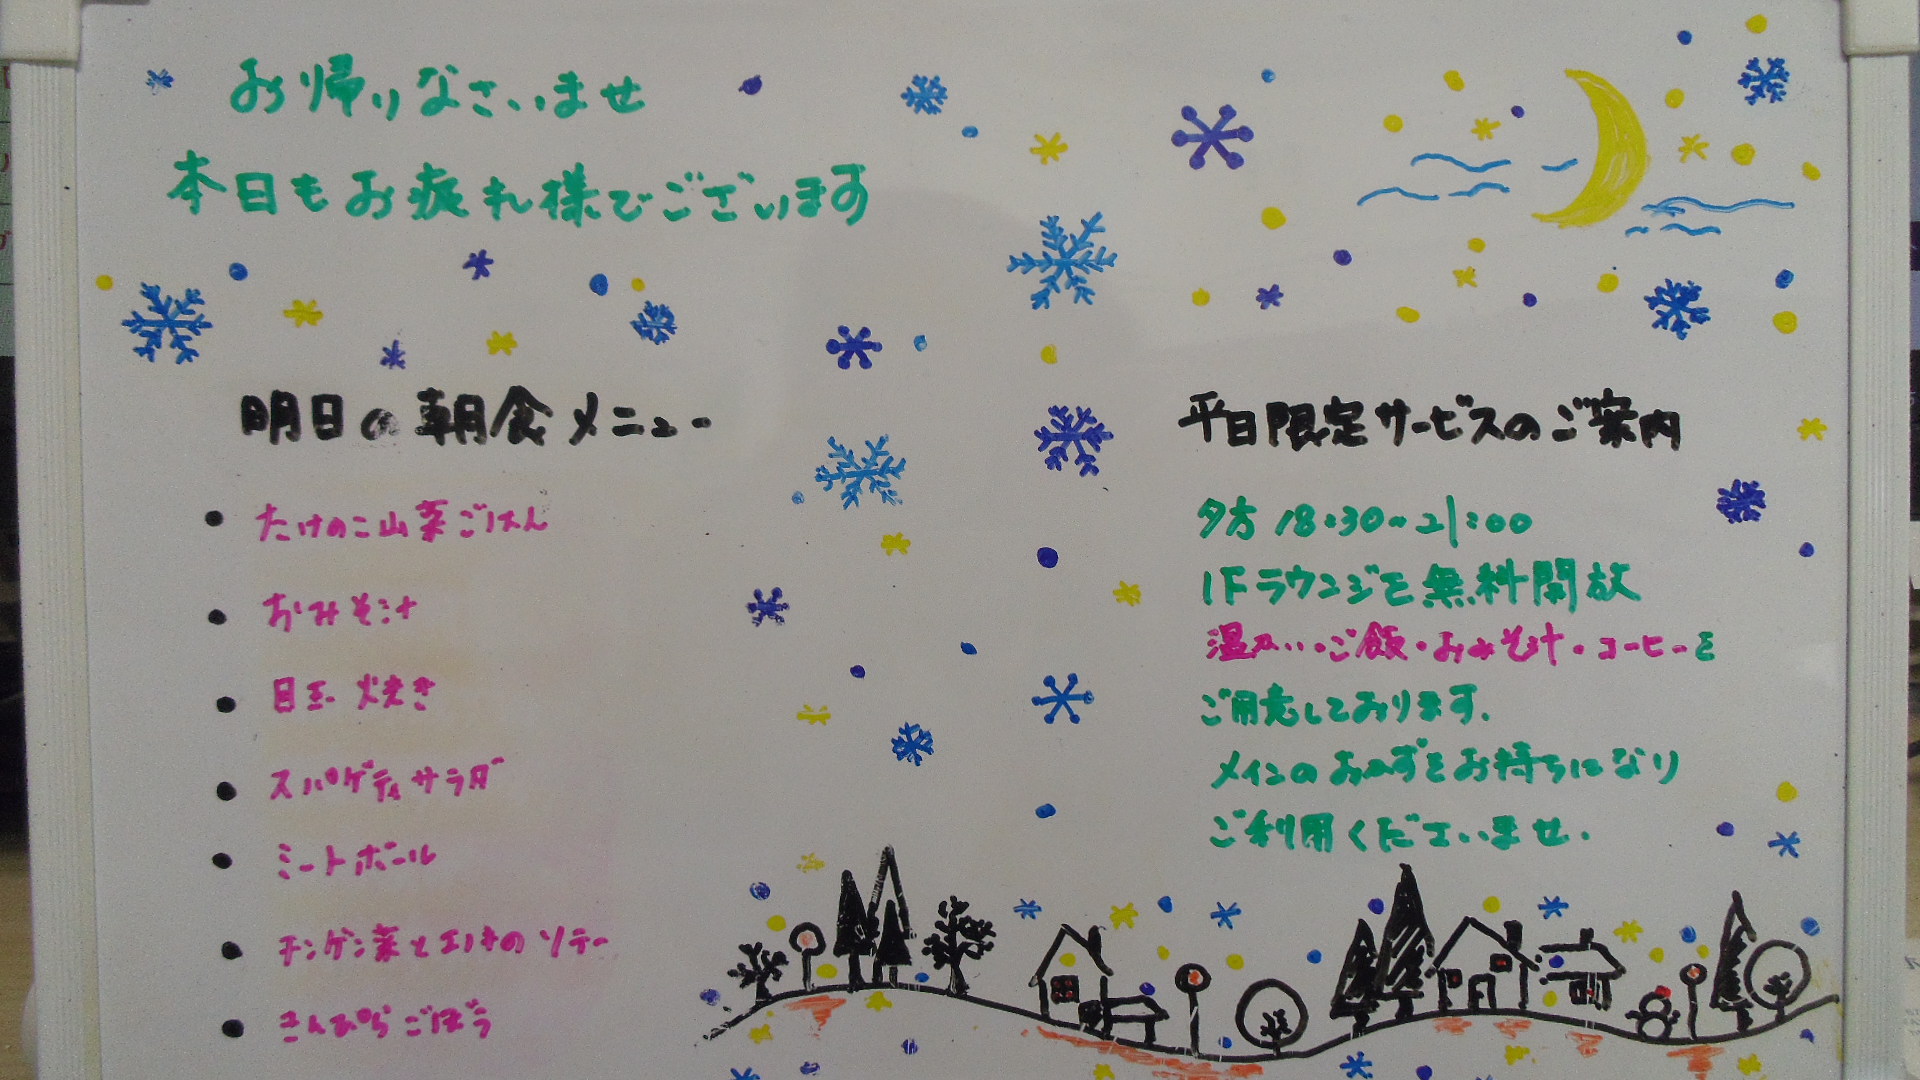 お帰りなさいませ
本日もお疲れ様でございます
明日の朝食メニュー
• たけのこ山菜ごはん
• おみそ汁
• 目玉焼き
• スパゲティサラダ
• ミートボール
• チンゲン菜とエノキのソテー
• きんぴらごぼう
平日限定サービスのご案内
夕方 18:30~21:00
1Fラウンジを無料開放
温かいご飯・おみそ汁・コーヒーを
ご用意しております.
メインのおかずをお持ちになり
ご利用くださいませ.